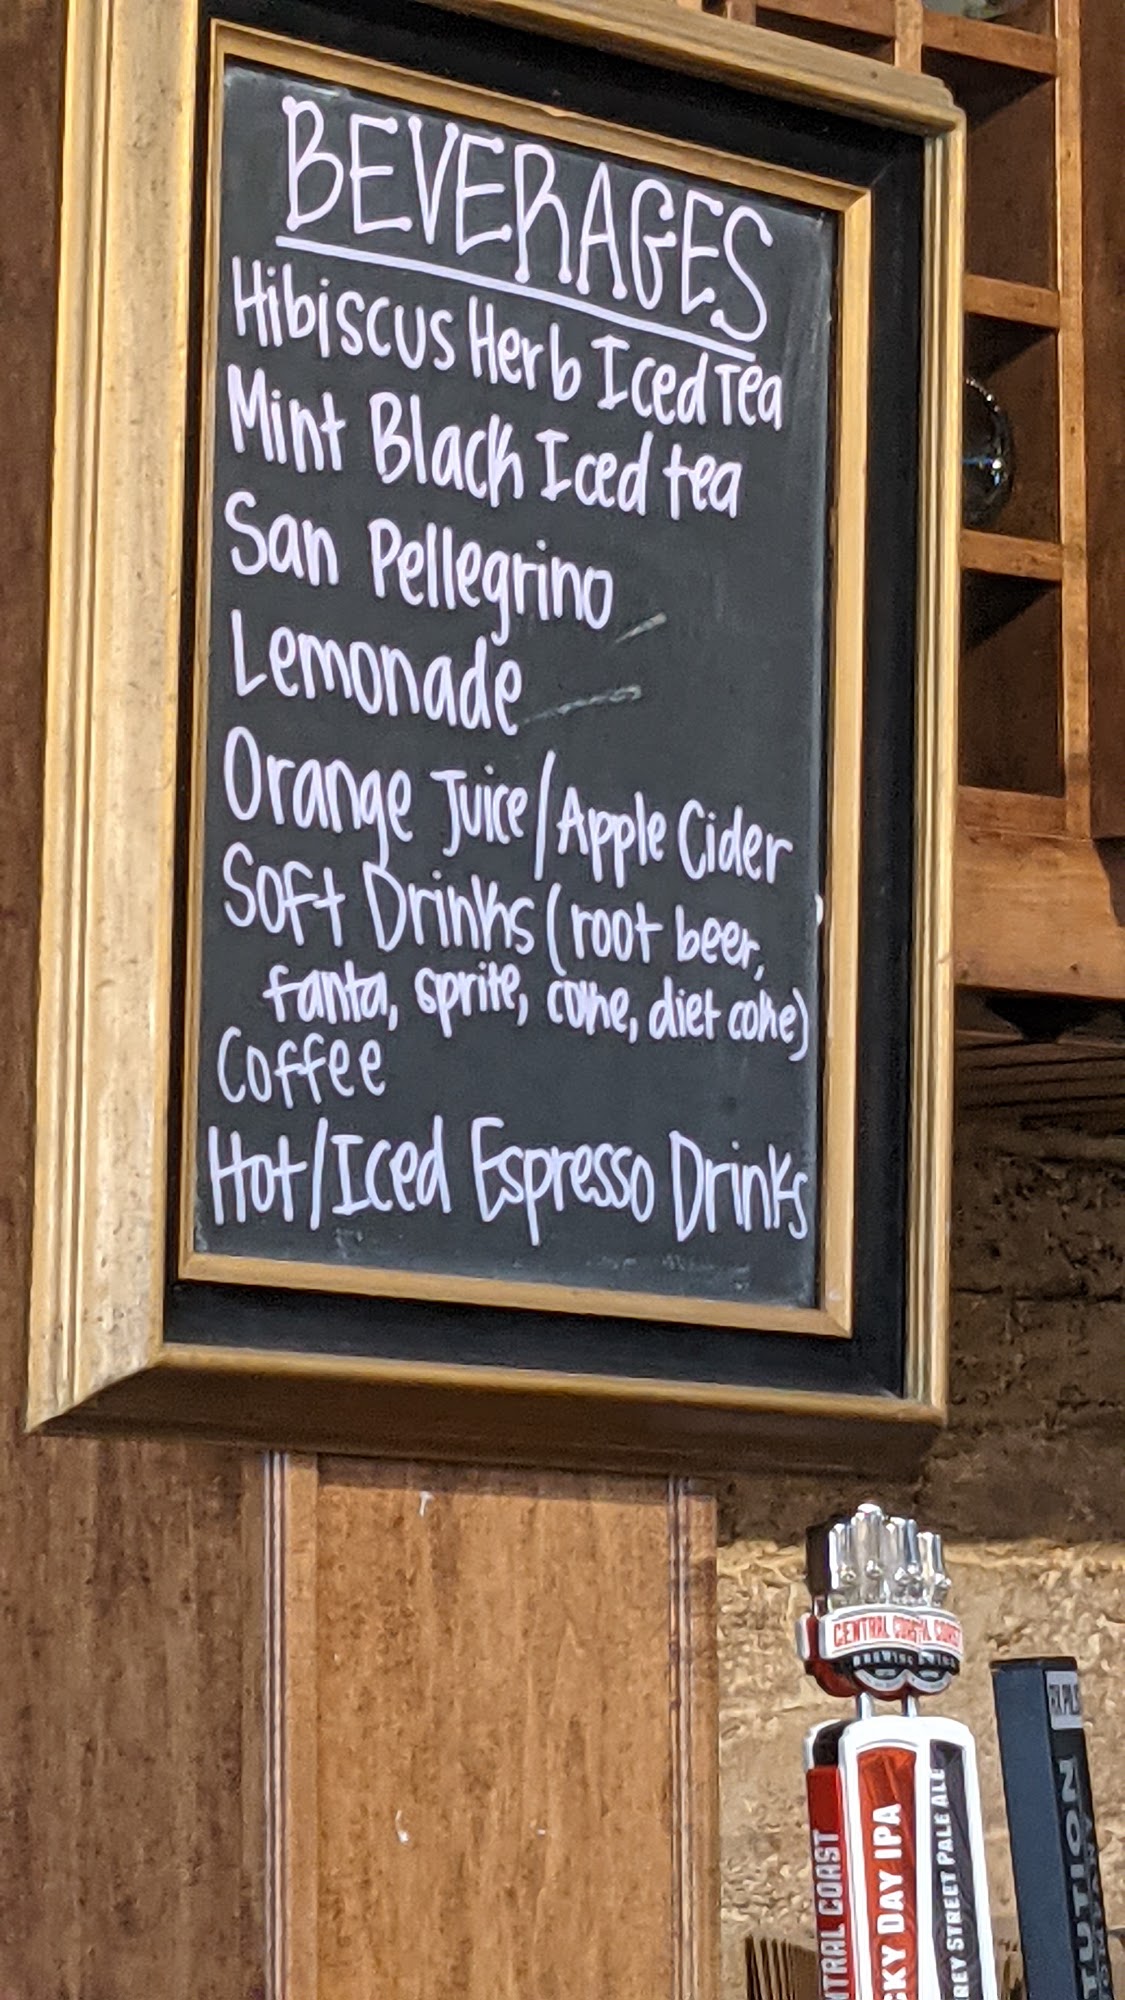 BEVERAGES
Hibiscus Herb Iced Tea
Mint Black Iced tea
San Pellegrino
Lemonade
Orange Juice/Apple Cider
Soft Drinks (root beer,
fanta, sprite, coke, diet coke)
Coffee
Hot/Iced Espresso Drinks
CENTRAL COAST
BREWING
NTRAL COAST
CKY DAY IPA
REY STREET PALE ALE
UTION